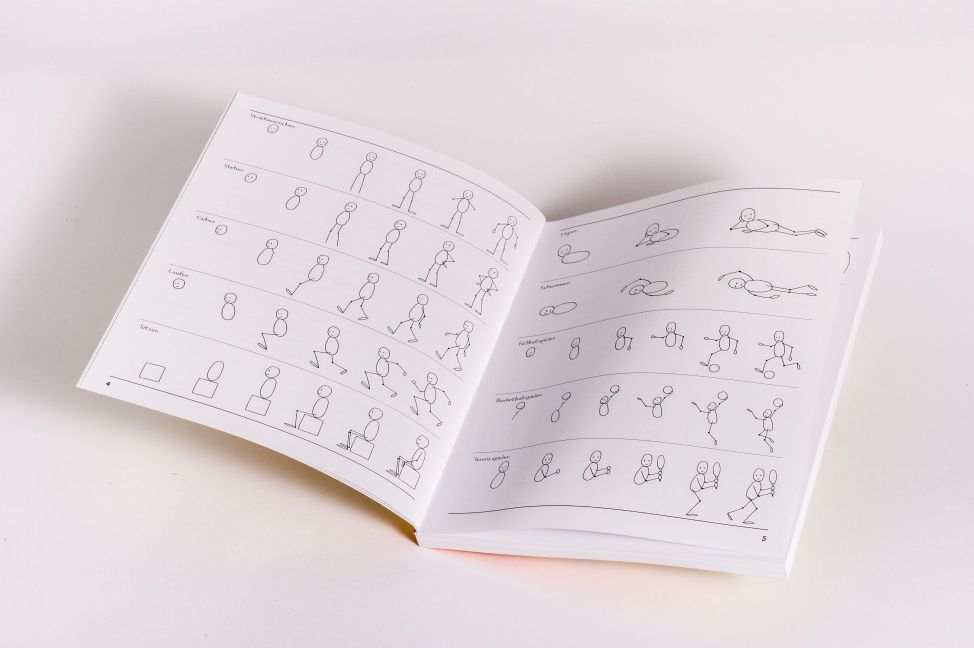 Strichmännchen
Stehen
Gehen
Laufen
Sitzen
4
Liegen
Schwimmen
Fußball spielen
Basketball spielen
Tennis spielen
5